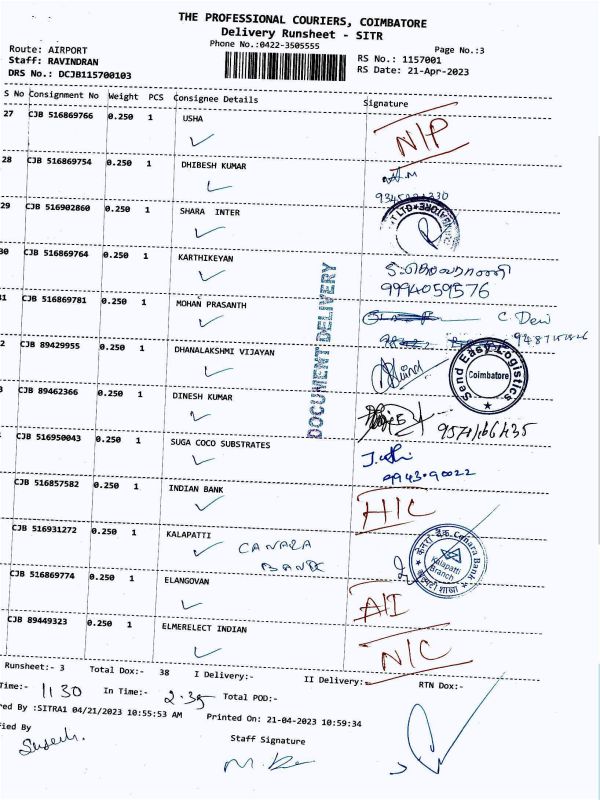 THE PROFESSIONAL COURIERS, COIMBATORE
Delivery Runsheet - SITR
Phone No.:0422-3505555
Page No.:3
Route: AIRPORT
Staff: RAVINDRAN
DRS No.: DCJB115700103
RS No.: 1157001
RS Date: 21-Apr-2023
S No Consignment No Weight PCS Consignee Details Signature
27 CJB 516869766 0.250 1 USHA N/P
28 CJB 516869754 0.250 1 DHIBESH KUMAR
29 CJB 516902860 0.250 1 SHARA INTER
30 CJB 516869764 0.250 1 KARTHIKEYAN
9994059576
31 CJB 516869781 0.250 1 MOHAN PRASANTH C. Devi
DOCUMENT DELIVERY
2 CJB 89429955 0.250 1 DHANALAKSHMI VIJAYAN
Send Easy Logistics
Coimbatore
CJB 89462366 0.250 1 DINESH KUMAR
CJB 516950043 0.250 1 SUGA COCO SUBSTRATES
CJB 516857582 0.250 1 INDIAN BANK H/C
CJB 516931272 0.250 1 KALAPATTI
CANARA
BANK
केनरा बैंक Canara Bank
Kalapatti
Branch
CJB 516869774 0.250 1 ELANGOVAN A/I
CJB 89449323 0.250 1 ELMERELECT INDIAN N/C
Runsheet:- 3 Total Dox:- 38 I Delivery:- II Delivery:- RTN Dox:-
Time:- 11 30 In Time:- 2.35 Total POD:-
red By :SITRA1 04/21/2023 10:55:53 AM Printed On: 21-04-2023 10:59:34
fied By
Staff Signature